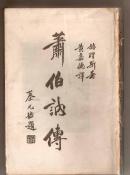 赫理斯著
黃嘉德譯
蕭伯訥傳
蔡元培題